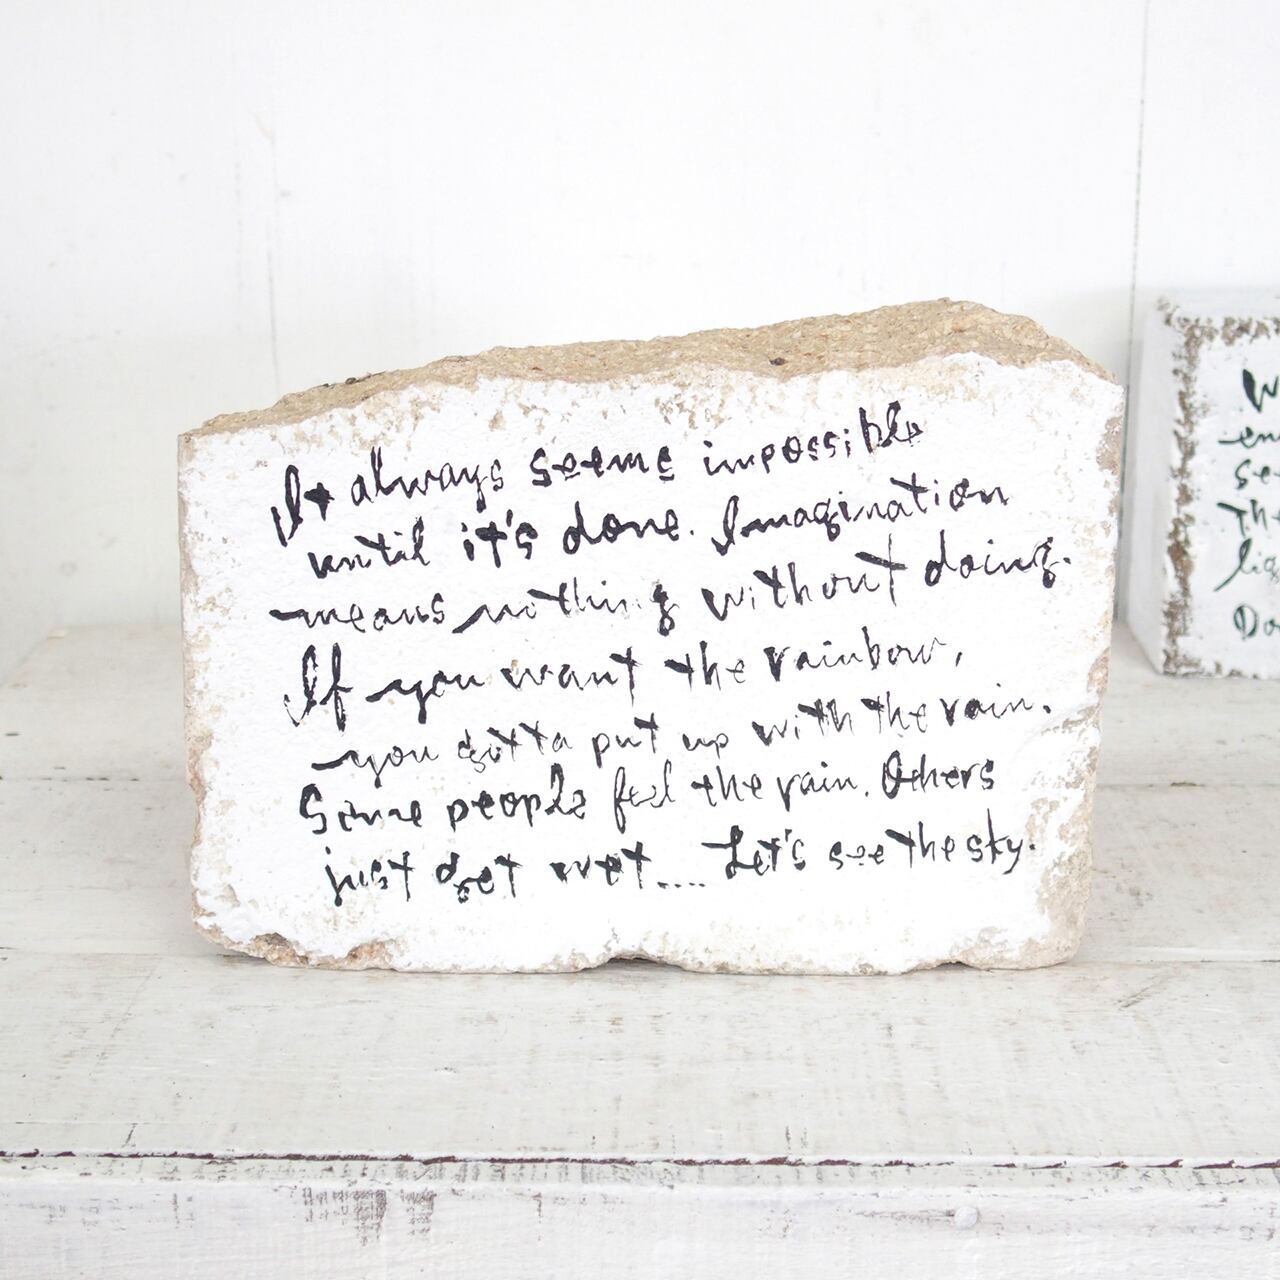 It always seems impossible
until it's done. Imagination
means nothing without doing.
If you want the rainbow,
you gotta put up with the rain.
Some people feel the rain. Others
just get wet.... Let's see the sky.
W
en
se
Th
lig
Do